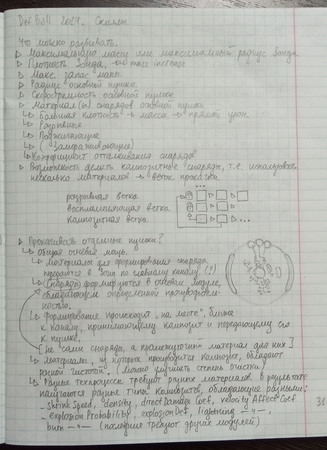 Def Ball 2024. Скиллы
Что можно развивать.
Максимальную массу или максимальный радиус зонда
Плотность зонда,
Макс. запас маны
Радиус основной пушки.
Скорострельность основной пушки
Материал(ы) снарядов основной пушки
Большая плотность → масса → прямой урон
Разрывные
Поджигающие
(Замораживающие)
Коэффициент отталкивания снарядов
Возможность делать композитные снаряды, т.е. использовать
несколько материалов → веток прокачки
разрывная ветка
воспламеняющая ветка
композитная ветка
Прокачивать отдельные пушки?
Общая огневая мощь.
материалы для формирования снаряда
подаются в зону по главному каналу (?)
Снаряды формируются в огневом модуле,
обладающем определённой производитель-
ностью.
Формирование происходит „на месте",
к каналу, принимающему композит и передающему его
к пушке.
[не сами снаряды, а промежуточный материал для них]
Материалы, из которых производится композит, обладают
разной чистотой, (можно улучшать степень очистки)
Разные техпроцессы требуют разных материалов, в результате
получаются разные типы композитов, обладающие разными:
- Shrink Speed, density, direct Damage Coef, velocity Affect Coef
- explosion Probability, explosion Def, lightning —"—,
burn —"— (последние требуют других модулей)
38